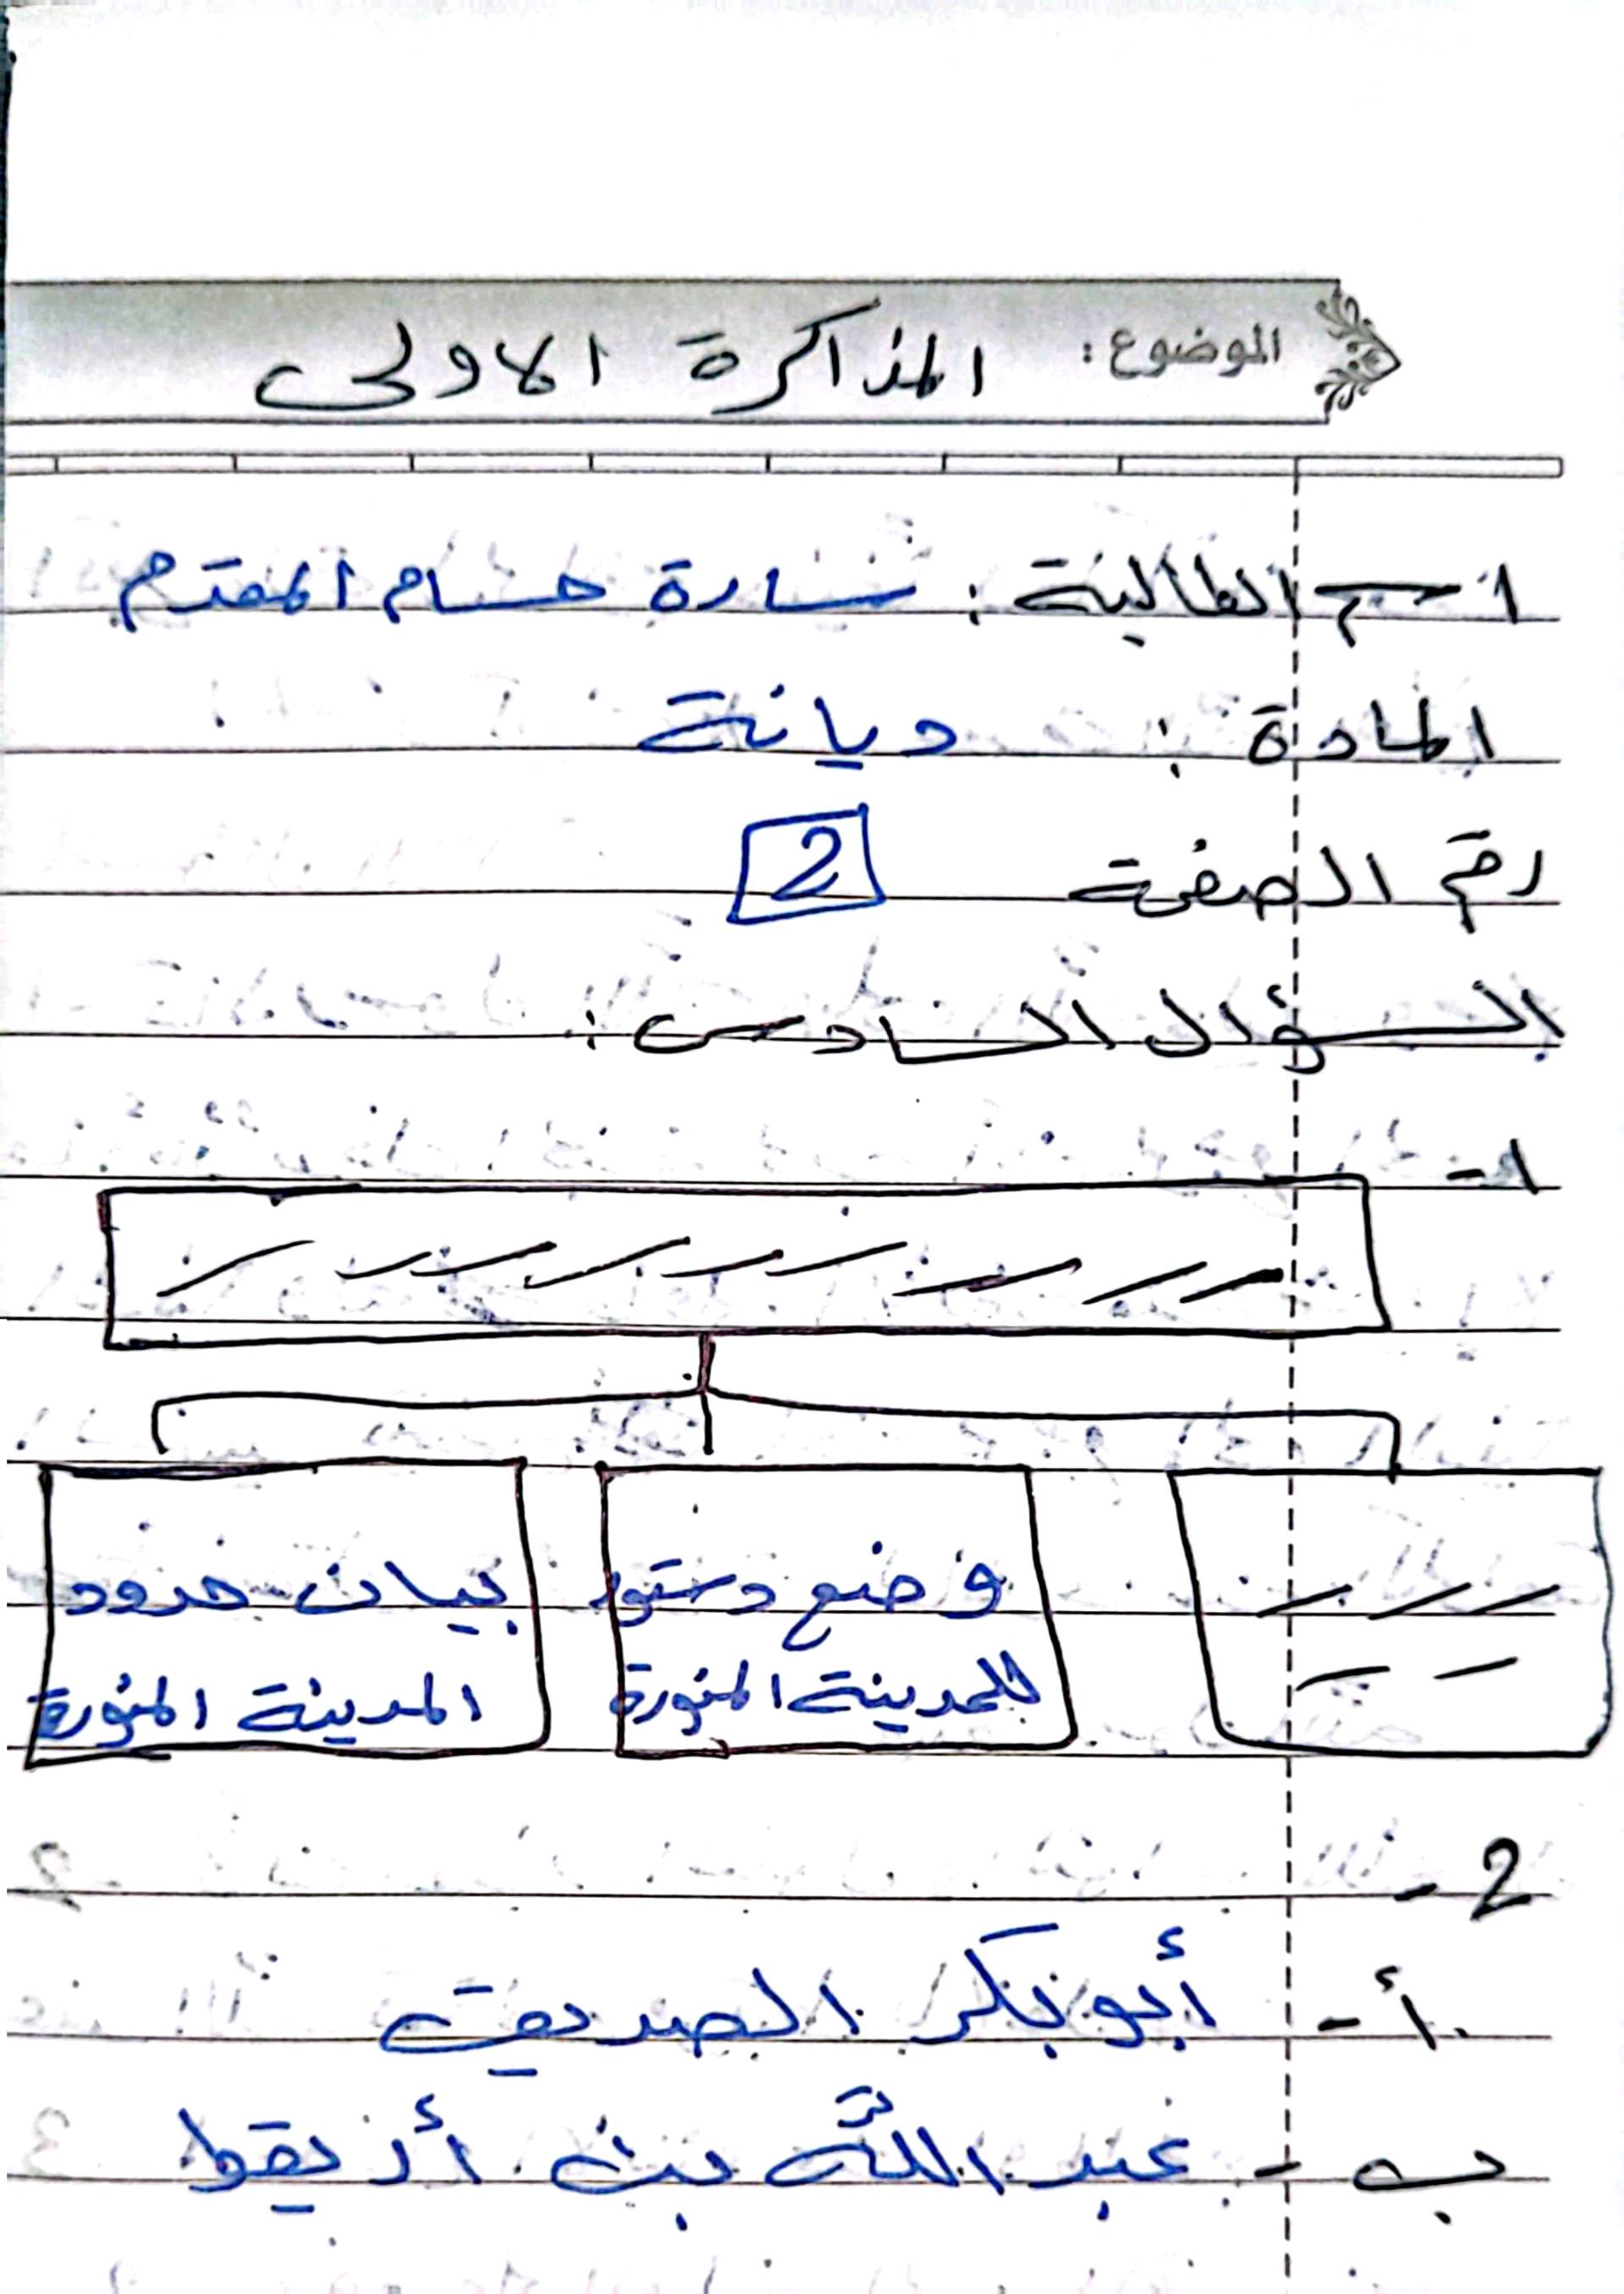 الموضوع: المذاكرة الاولى
اسم الطالبة: سارة حسام المقدم
المادة: ديانة
رقم الصفحة 2
السؤال السادس:
1-
وضع دستور
للمدينة المنورة
بيان حدود
المدينة المنورة
2-
أ- أبو بكر الصديق
ب- عبد اللّه بن أريقط